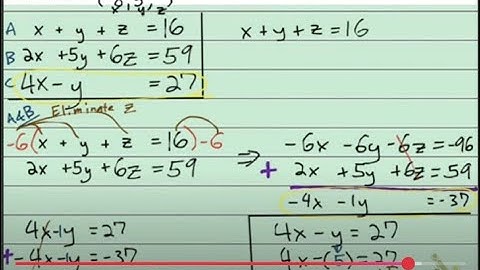 (x, y, z)
A x + y + z = 16
x + y + z = 16
B 2x + 5y + 6z = 59
C 4x - y = 27
A&B Eliminate z
-6(x + y + z = 16)-6
2x + 5y + 6z = 59
⇒ -6x - 6y - 6z = -96
+ 2x + 5y + 6z = 59
-4x - 1y = -37
4x - 1y = 27
+ -4x - 1y = -37
4x - y = 27
4x - (5) = 27